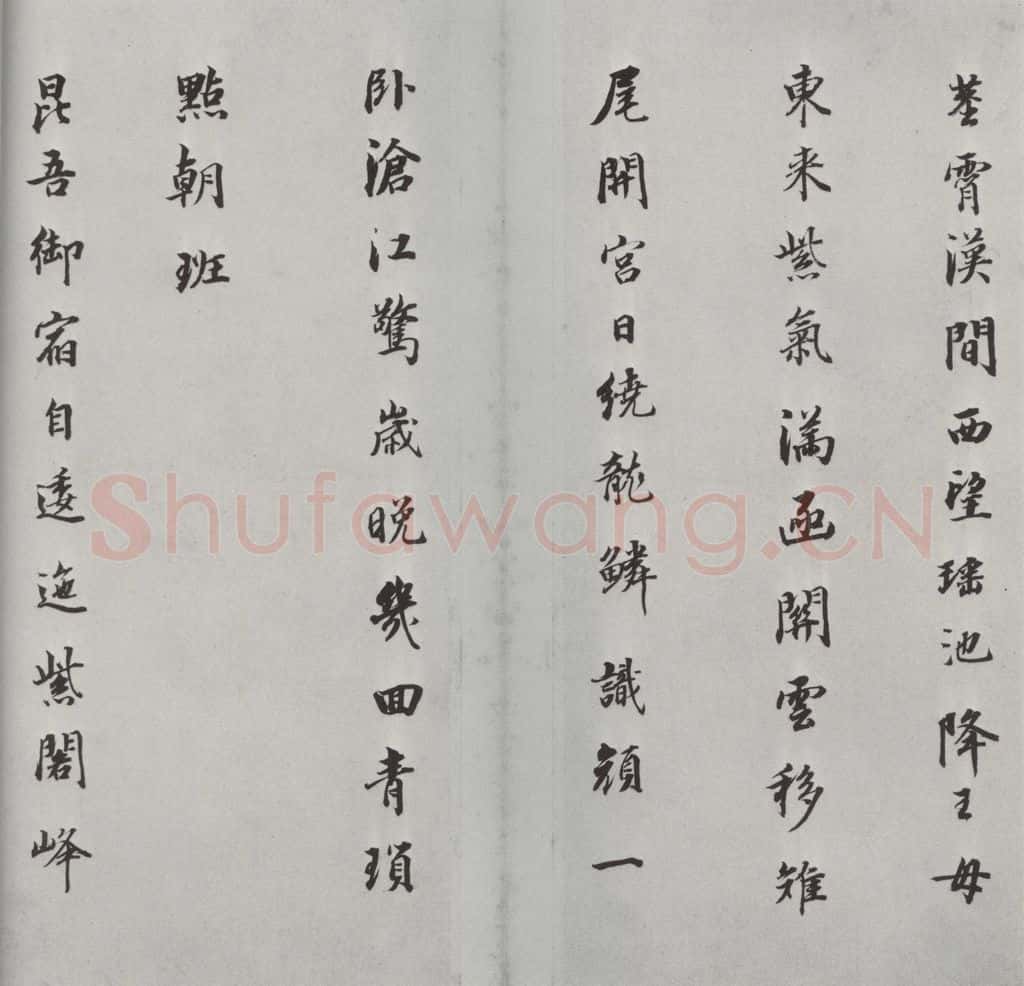 莖霄漢間西望瑶池降王母
東来紫氣滿函關雲移雉
尾開宮日繞龍鱗識顔一
卧滄江驚歲晚幾回青瑣
點朝班
昆吾御宿自逶迤紫閣峰
Shufawang.CN